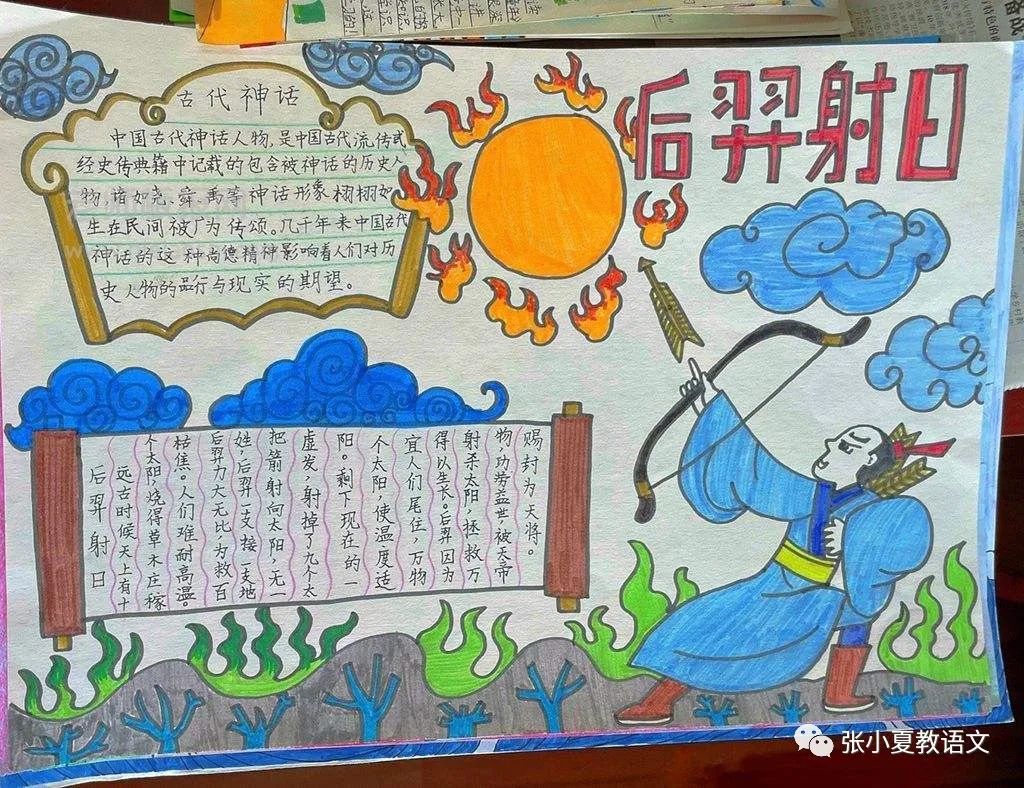 后羿射日
古代神话
中国古代神话人物,是中国古代流传或
经史传典籍中记载的包含被神话的历史人
物,谙如尧、舜、禹等神话形象栩栩如
生在民间被广为传颂。几千年来中国古代
神话的这种尚德精神影响着人们对历
史人物的品行与现实的期望。
后羿射日
远古时候天上有十
个太阳,烧得草木庄稼
枯焦。人们难耐高温。
后羿力大无比,为救百
姓,后羿一支接一支地
把箭射向太阳,无一
虚发,射掉了九个太
阳。剩下现在的一
个太阳,使温度适
宜人们尾住,万物
得以生长。后羿因为
射杀太阳,拯救万
物,功劳盖世,被天帝
赐封为天将。
张小夏教语文